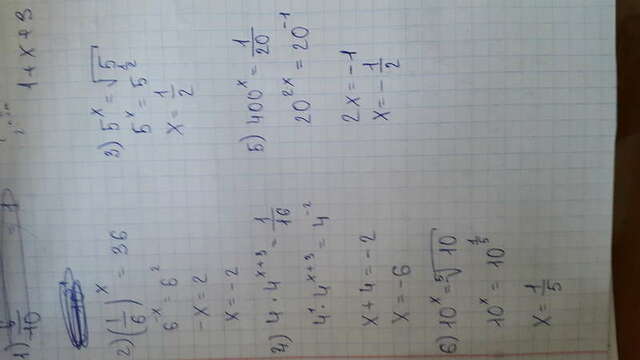 1 + x + 3
1)
2) (1/6)^x = 36
6^-x = 6^2
-x = 2
x = -2
3) 5^x = √5
5^x = 5^(1/2)
x = 1/2
4) 4 · 4^(x+3) = 1/16
4^1 · 4^(x+3) = 4^-2
x + 4 = -2
x = -6
5) 400^x = 1/20
20^(2x) = 20^-1
2x = -1
x = -1/2
6) 10^x = ⁵√10
10^x = 10^(1/5)
x = 1/5